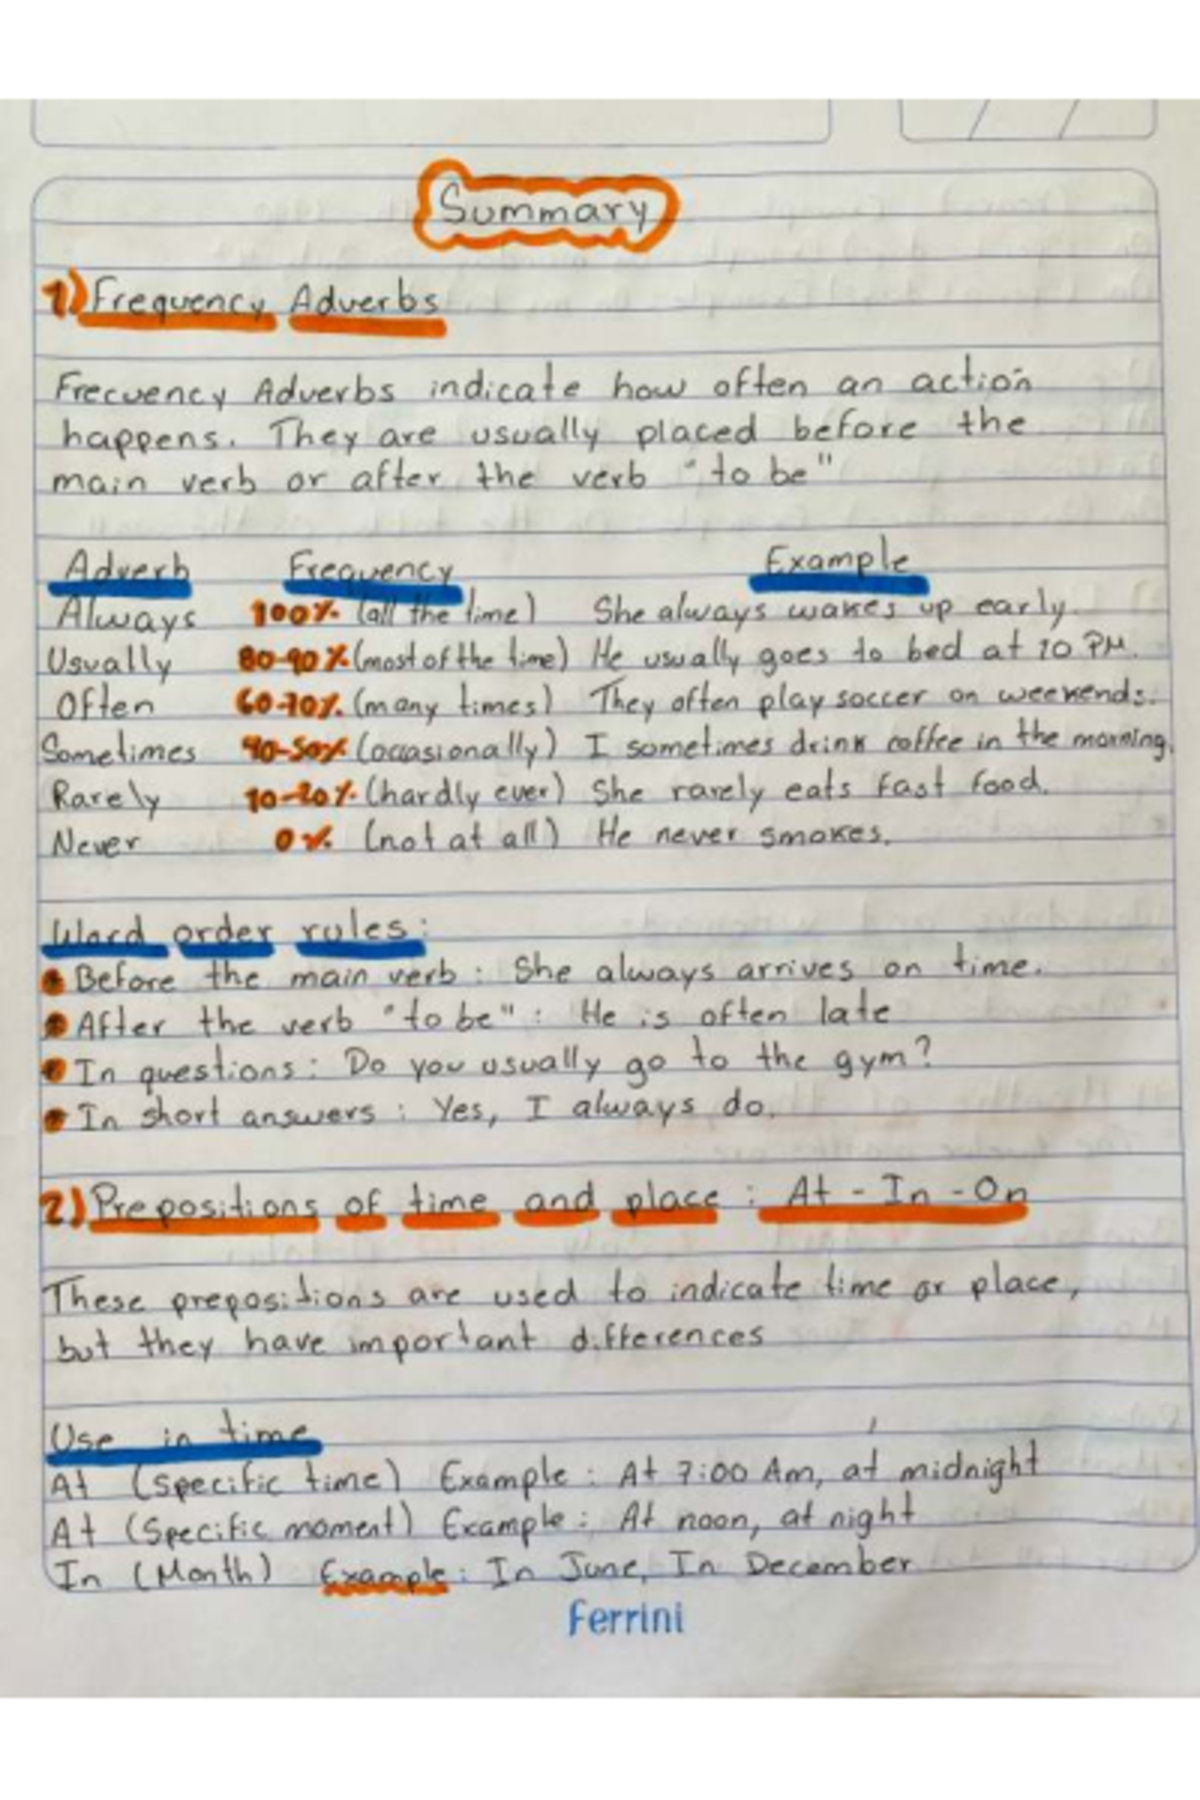 Summary
1) Frequency Adverbs
Frecuency Adverbs indicate how often an action
happens. They are usually placed before the
main verb or after the verb "to be"
Adverb Frequency Example
Always 100% (all the time) She always wakes up early.
Usually 80-90% (most of the time) He usually goes to bed at 10 PM.
Often 60-70% (many times) They often play soccer on weekends.
Sometimes 40-50% (occasionally) I sometimes drink coffee in the morning.
Rarely 10-20% (hardly ever) She rarely eats fast food.
Never 0% (not at all) He never smokes.
Word order rules:
• Before the main verb: She always arrives on time.
• After the verb "to be": He is often late
• In questions: Do you usually go to the gym?
• In short answers: Yes, I always do.
2) Prepositions of time and place: At - In - On
These prepositions are used to indicate time or place,
but they have important differences
Use in time
At (specific time) Example: At 7:00 Am, at midnight
At (Specific moment) Example: At noon, at night
In (Month) Example: In June, In December
Ferrini